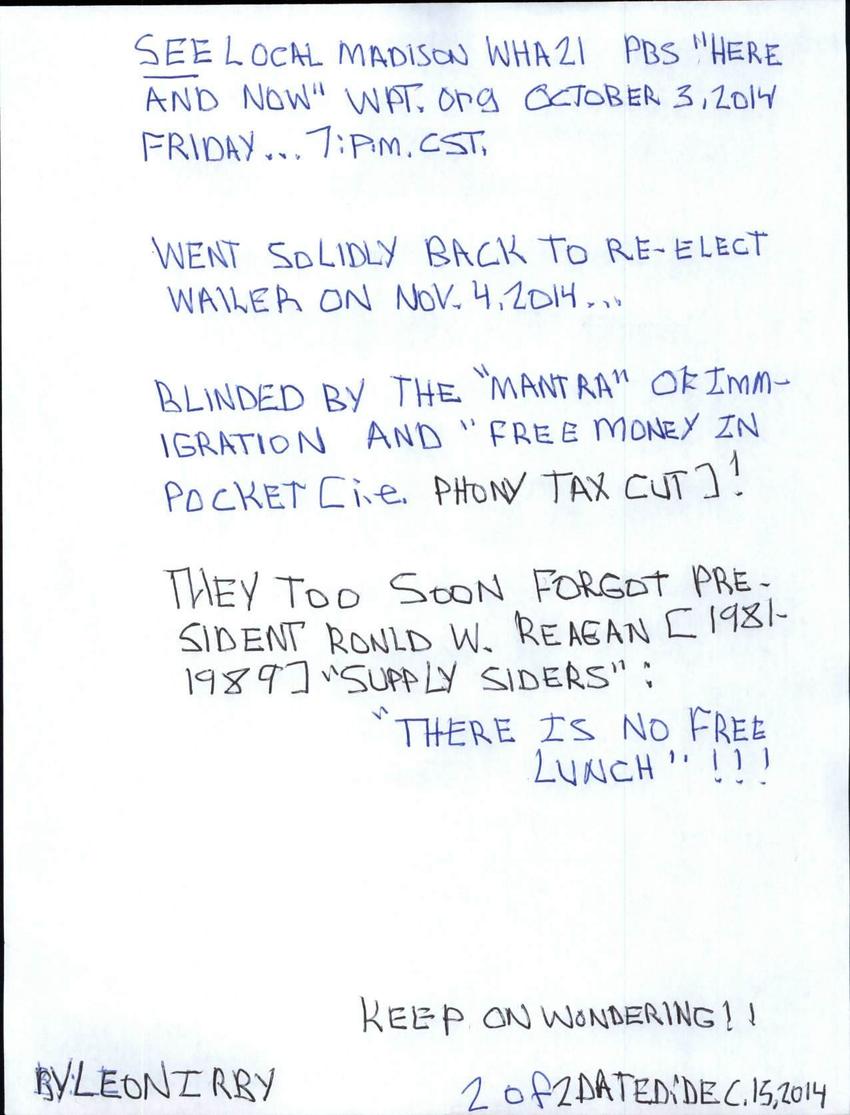 SEE LOCAL MADISON WHA21 PBS "HERE
AND NOW" WPT. Org OCTOBER 3, 2014
FRIDAY... 7:P.M. CST.
WENT SOLIDLY BACK TO RE-ELECT
WALKER ON NOV. 4, 2014...
BLINDED BY THE "MANTRA" OF IMM-
IGRATION AND "FREE MONEY IN
POCKET [i.e. PHONY TAX CUT]!
THEY TOO SOON FORGOT PRE-
SIDENT RONLD W. REAGAN [1981-
1989] "SUPPLY SIDERS":
"THERE IS NO FREE
LUNCH"!!!
KEEP ON WONDERING!!
BY: LEON IRBY
2 of 2 DATED: DEC. 15, 2014